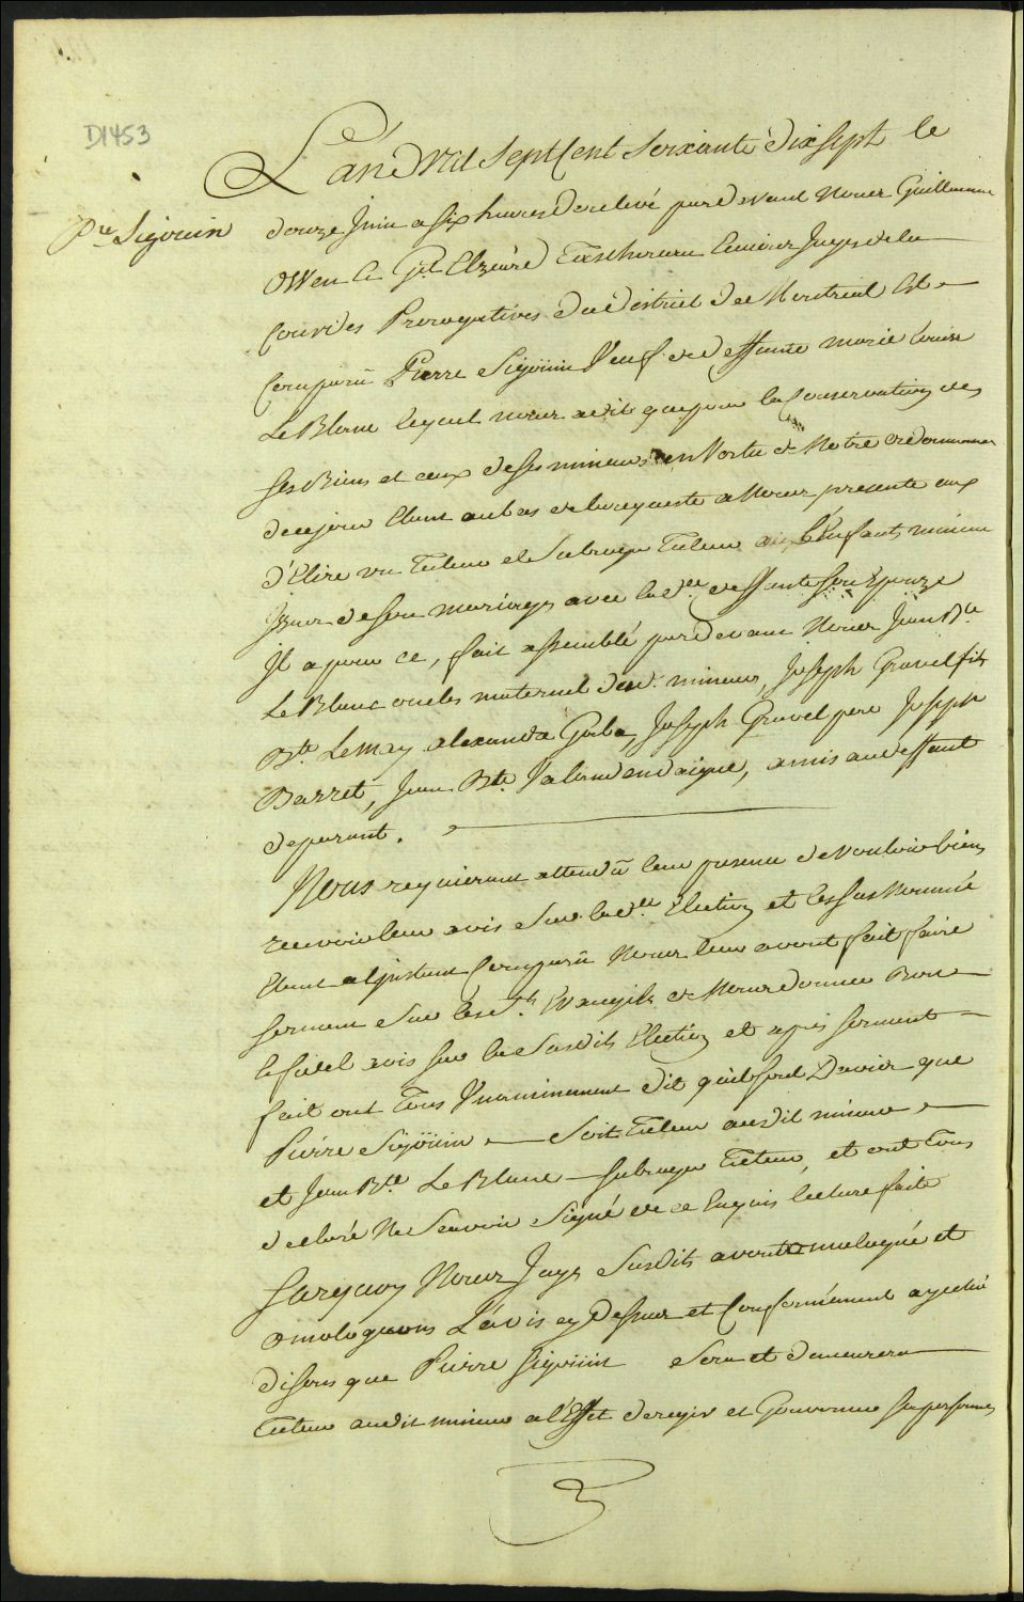 D1453
L'an Mil Sept Cent Soixante dix Sept le
Pre Sigouin
douze Juin a Six heures de relevé pardevant Nous Guillaume
Owen & Prl Elzéard Juges de la
Cour des Prerogatives du district de Montreal Est
Comparû Pierre Sigöuin Veuf de deffunte marie Louise
LeBlanc lequel nous a dit que pour la Conservation de
ses Biens et ceux de ses mineurs en Vertu de Notre ordonnance
de ce jour Etant au bas de la requeste a Nous presenté aux
d'Elire un Tuteur et Subrogé Tuteur Enfants mineur
Issus de son mariage avec lade deffunte Son Epouze
Il a pour ce, fait assemblé pardevant Nous Jean Bte
LeBlanc oncles maternel desd. mineurs, Joseph Gravel fils
Bte Lemay alexandre Joseph Gravel pere Joseph
Barret, Jean Bte amis au deffaut
de parant.
Nous requierant attendû leur presence de Vouloir bien
recevoir leur avis Sur lade Election et les Sus Nommé
Etant a l'instant Comparû Nous leur avont fait faire
serment Sur les Sts Evangile de Nous donner Bon
& fidel avis sur la Susdite Election et après serment
fait ont Tous Unanimement dit qu'il sont Davis que
Pierre Sigöuin Soit Tuteur audit mineur
et Jean Bte LeBlanc Subroge Tuteur, et ont Tous
declaré Ne Scavoir Signé de ce Enquis lecture faite
Surquoy Nous Juge Susdits avont omologué et
omologuons L'avis cy Dessus et Conformément a yceluÿ
disons que Pierre Sigouin Sera et demeurera
Tuteur audit mineur a l'Effet de regir et Gouverner sa personne